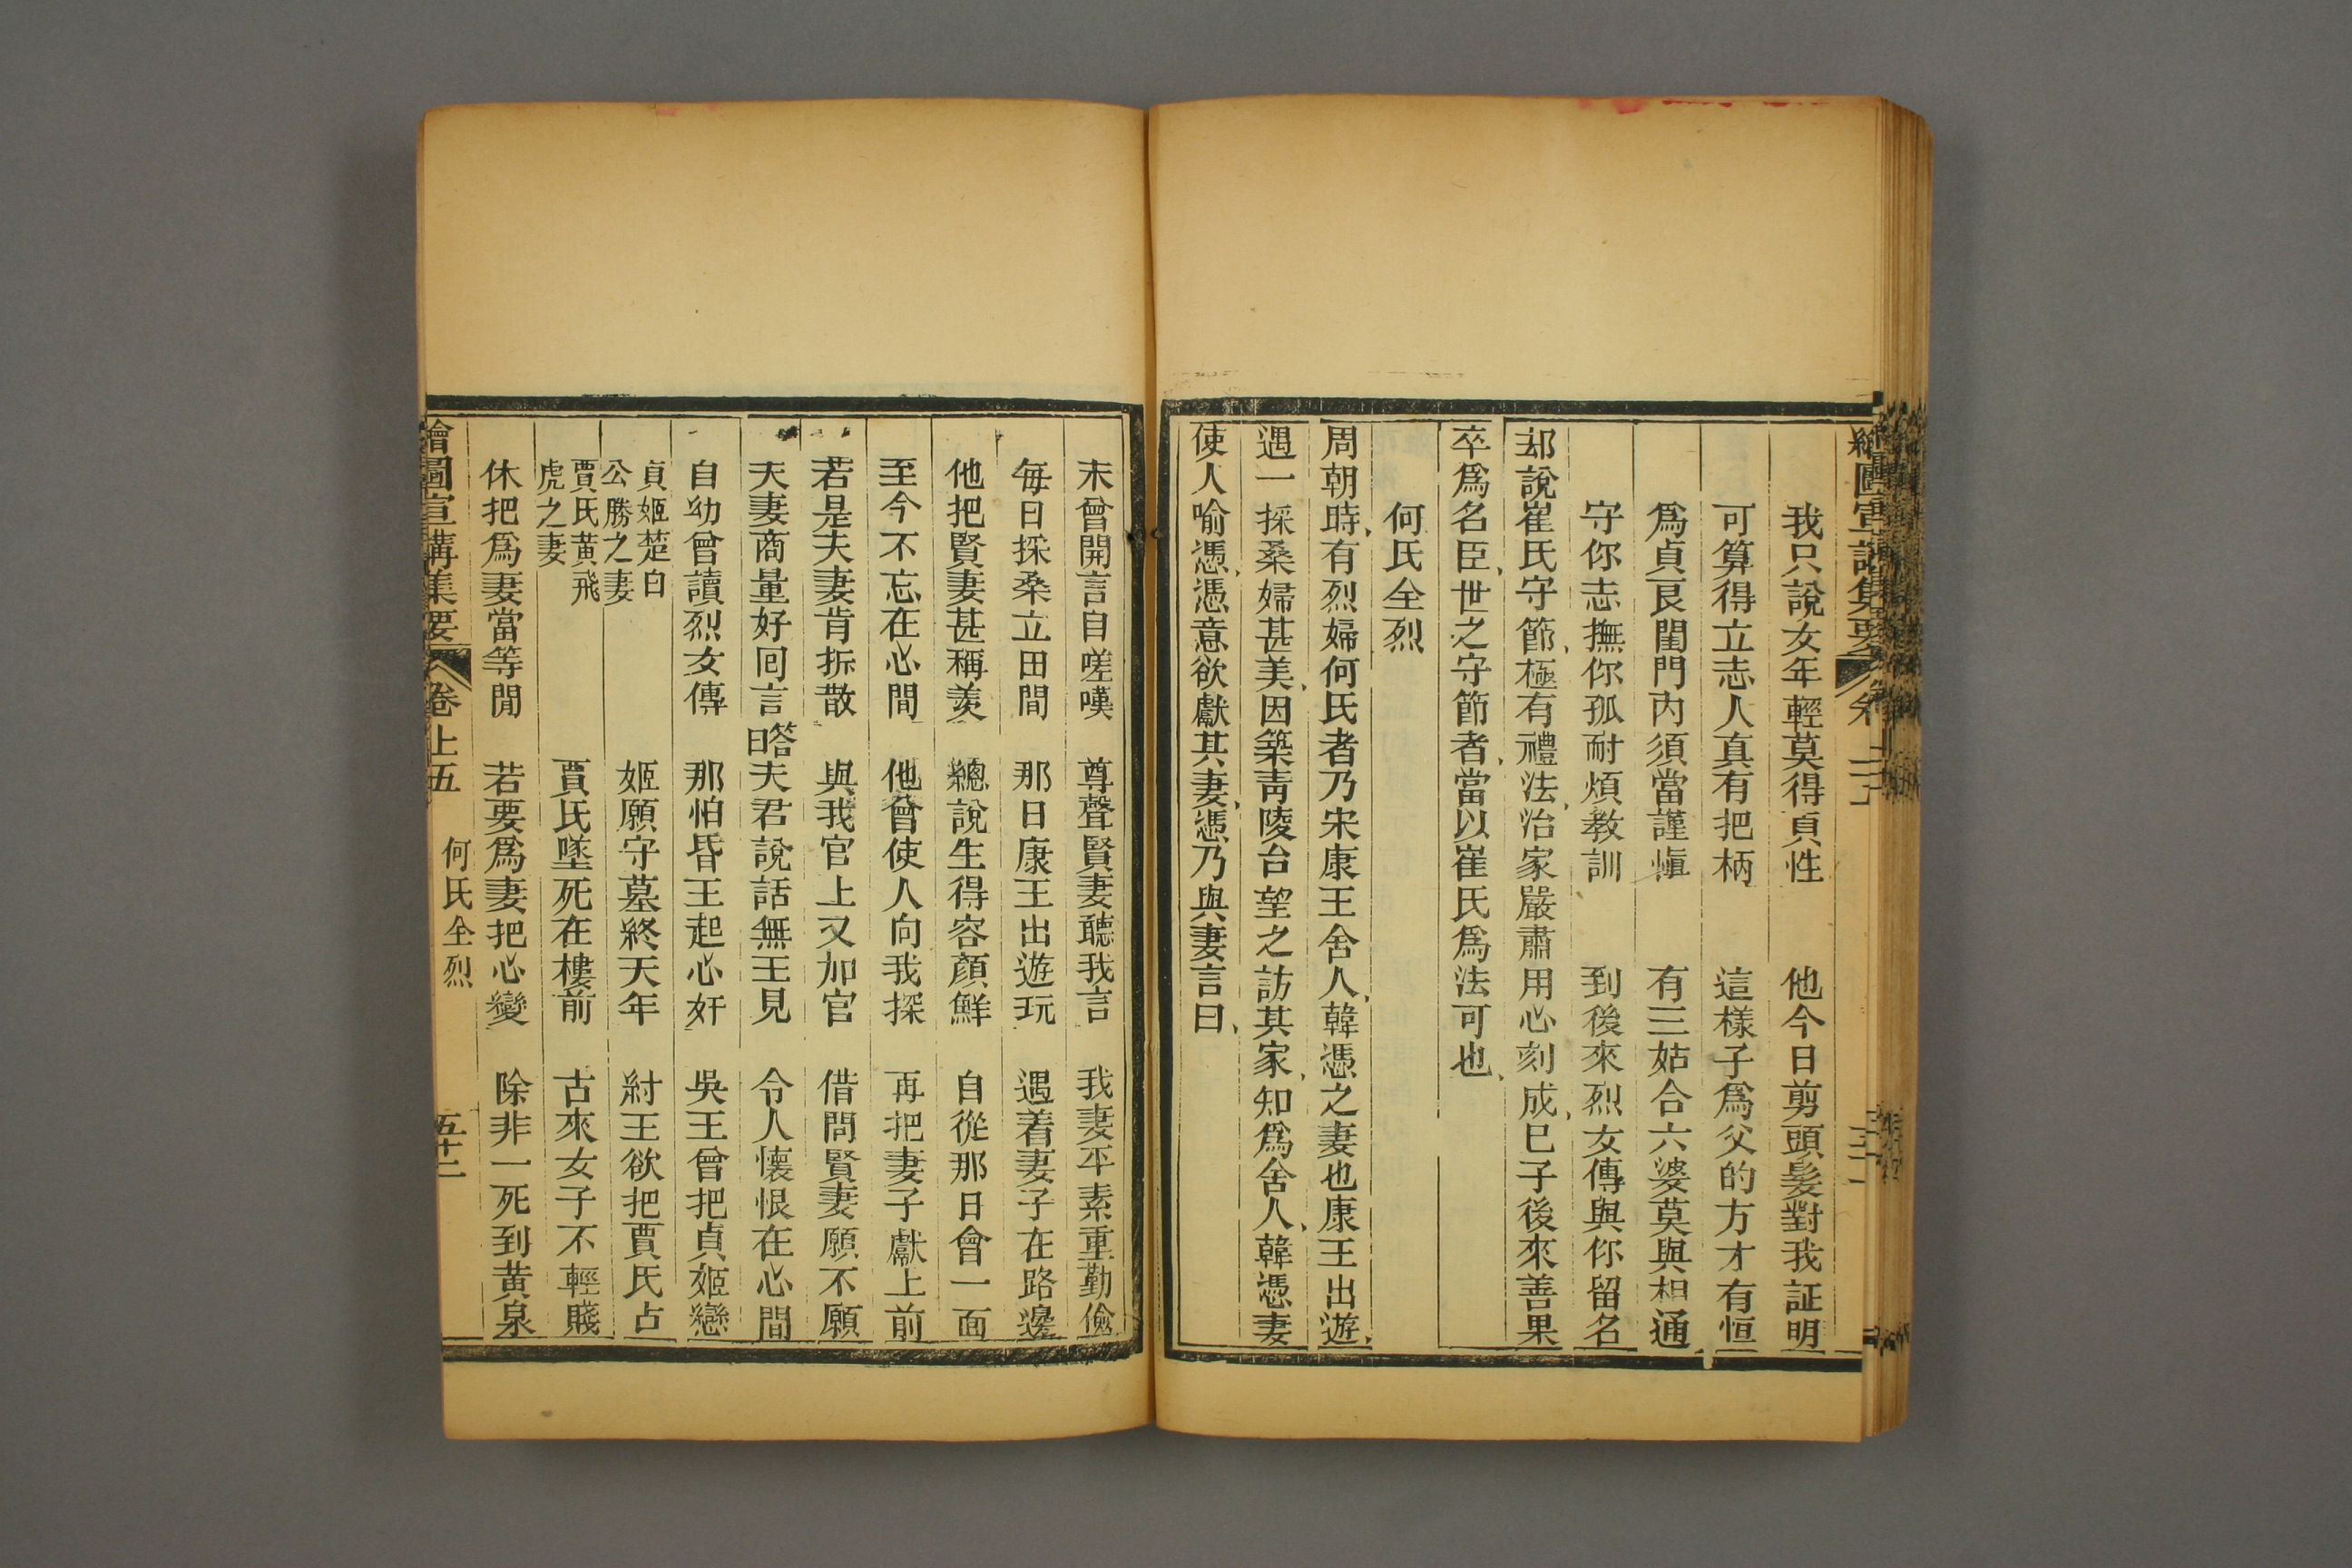 我只說女年輕莫得貞性　他今日剪頭髮對我証明
可算得立志人真有把柄　這樣子爲父的方才有恒
爲貞良閨門內須當謹愼　有三姑合六婆莫與相通
守你志撫你孤耐煩教訓　到後來烈女傳與你留名
却說崔氏守節、極有禮法、治家嚴肅用心刻成、巳子後來善果
卒爲名臣、世之守節者、當以崔氏爲法可也、
何氏全烈
周朝時、有烈婦何氏者乃宋康王舍人、韓憑之妻也康王出遊、
遇一採桑婦甚美、因築靑陵台望之訪其家、知爲舍人、韓憑妻
使人喻憑、憑意欲獻其妻、憑乃與妻言曰、
未曾開言自嗟嘆　尊聲賢妻聽我言　我妻平素重勤儉
每日採桑立田間　那日康王出遊玩　遇着妻子在路邊
他把賢妻甚稱羨　總說生得容顏鮮　自從那日會一面
至今不忘在心間　他曾使人向我探　再把妻子獻上前
若是夫妻肯拆散　與我官上又加官　借問賢妻願不願
夫妻商量好囘言　答曰夫君說話無王見　令人懷恨在心間
自幼曾讀烈女傳　那怕昏王起心奸　吳王曾把貞姬戀
貞姬楚白公勝之妻　姬願守墓終天年　紂王欲把賈氏占
賈氏黃飛虎之妻　賈氏墜死在樓前　古來女子不輕賤
休把爲妻當等閒　若要爲妻把心變　除非一死到黃泉
繪圖宣講集要　卷上五　何氏全烈　五十二